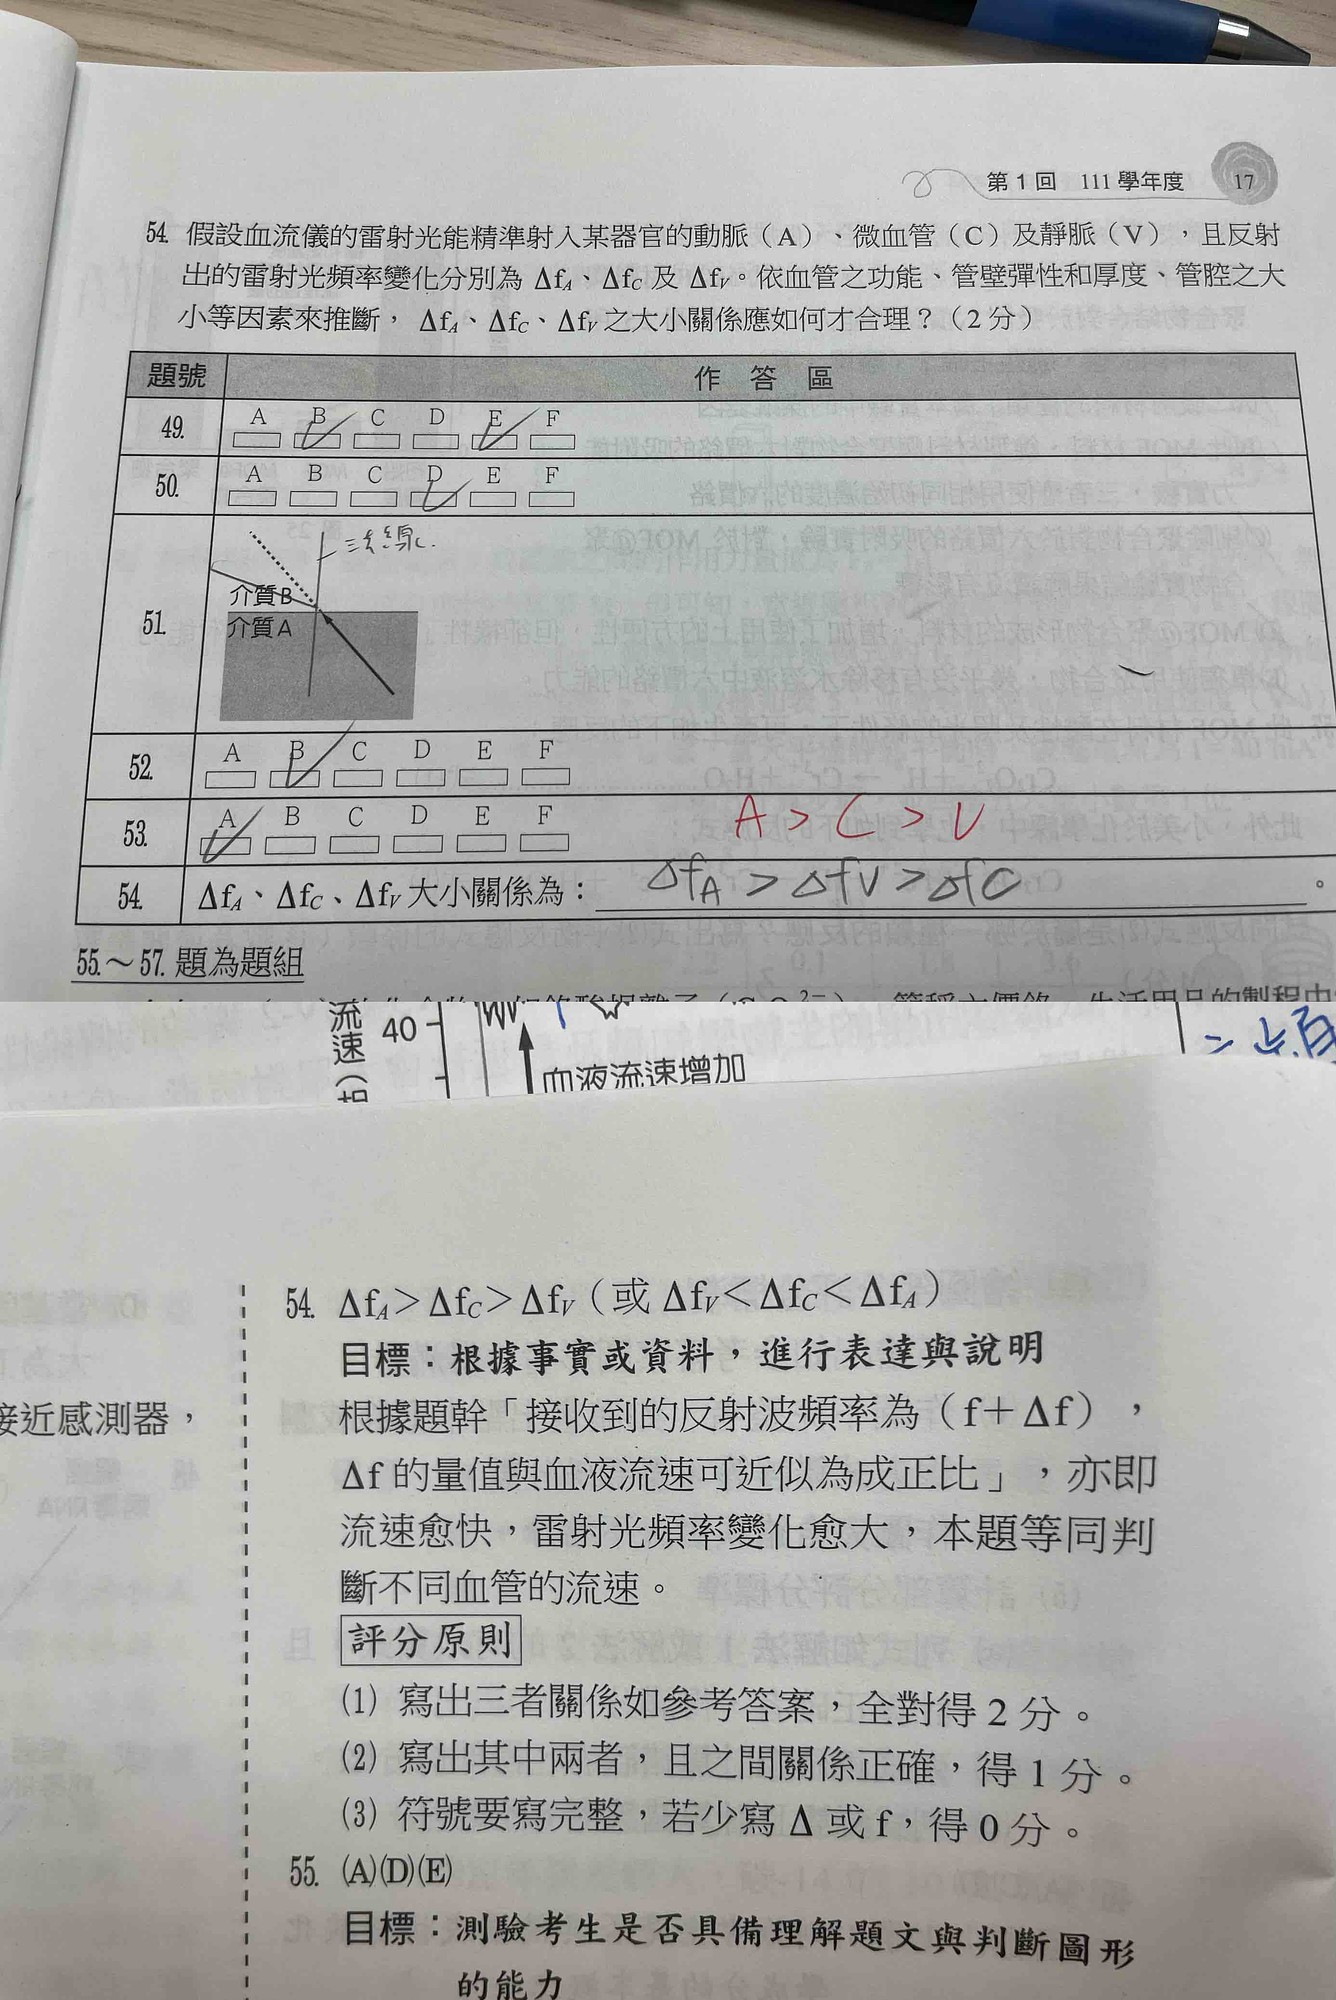 第1回 111學年度 17
54. 假設血流儀的雷射光能精準射入某器官的動脈（A）、微血管（C）及靜脈（V），且反射
出的雷射光頻率變化分別為 ΔfA、ΔfC 及 ΔfV。依血管之功能、管壁彈性和厚度、管腔之大
小等因素來推斷，ΔfA、ΔfC、ΔfV 之大小關係應如何才合理？（2分）
題號 作答區
49. A B C D E F
50. A B C D E F
法線
介質B
介質A
51.
52. A B C D E F
53. A B C D E F
A > C > V
54. ΔfA、ΔfC、ΔfV 大小關係為： ΔfA > ΔfV > ΔfC 。
55.～57. 題為題組
流速 40
血液流速增加
接近感測器，
54. ΔfA＞ΔfC＞ΔfV（或 ΔfV＜ΔfC＜ΔfA）
目標：根據事實或資料，進行表達與說明
根據題幹「接收到的反射波頻率為（f＋Δf），
Δf 的量值與血液流速可近似為成正比」，亦即
流速愈快，雷射光頻率變化愈大，本題等同判
斷不同血管的流速。
評分原則
(1) 寫出三者關係如參考答案，全對得 2 分。
(2) 寫出其中兩者，且之間關係正確，得 1 分。
(3) 符號要寫完整，若少寫 Δ 或 f，得 0 分。
55. (A)(D)(E)
目標：測驗考生是否具備理解題文與判斷圖形
的能力